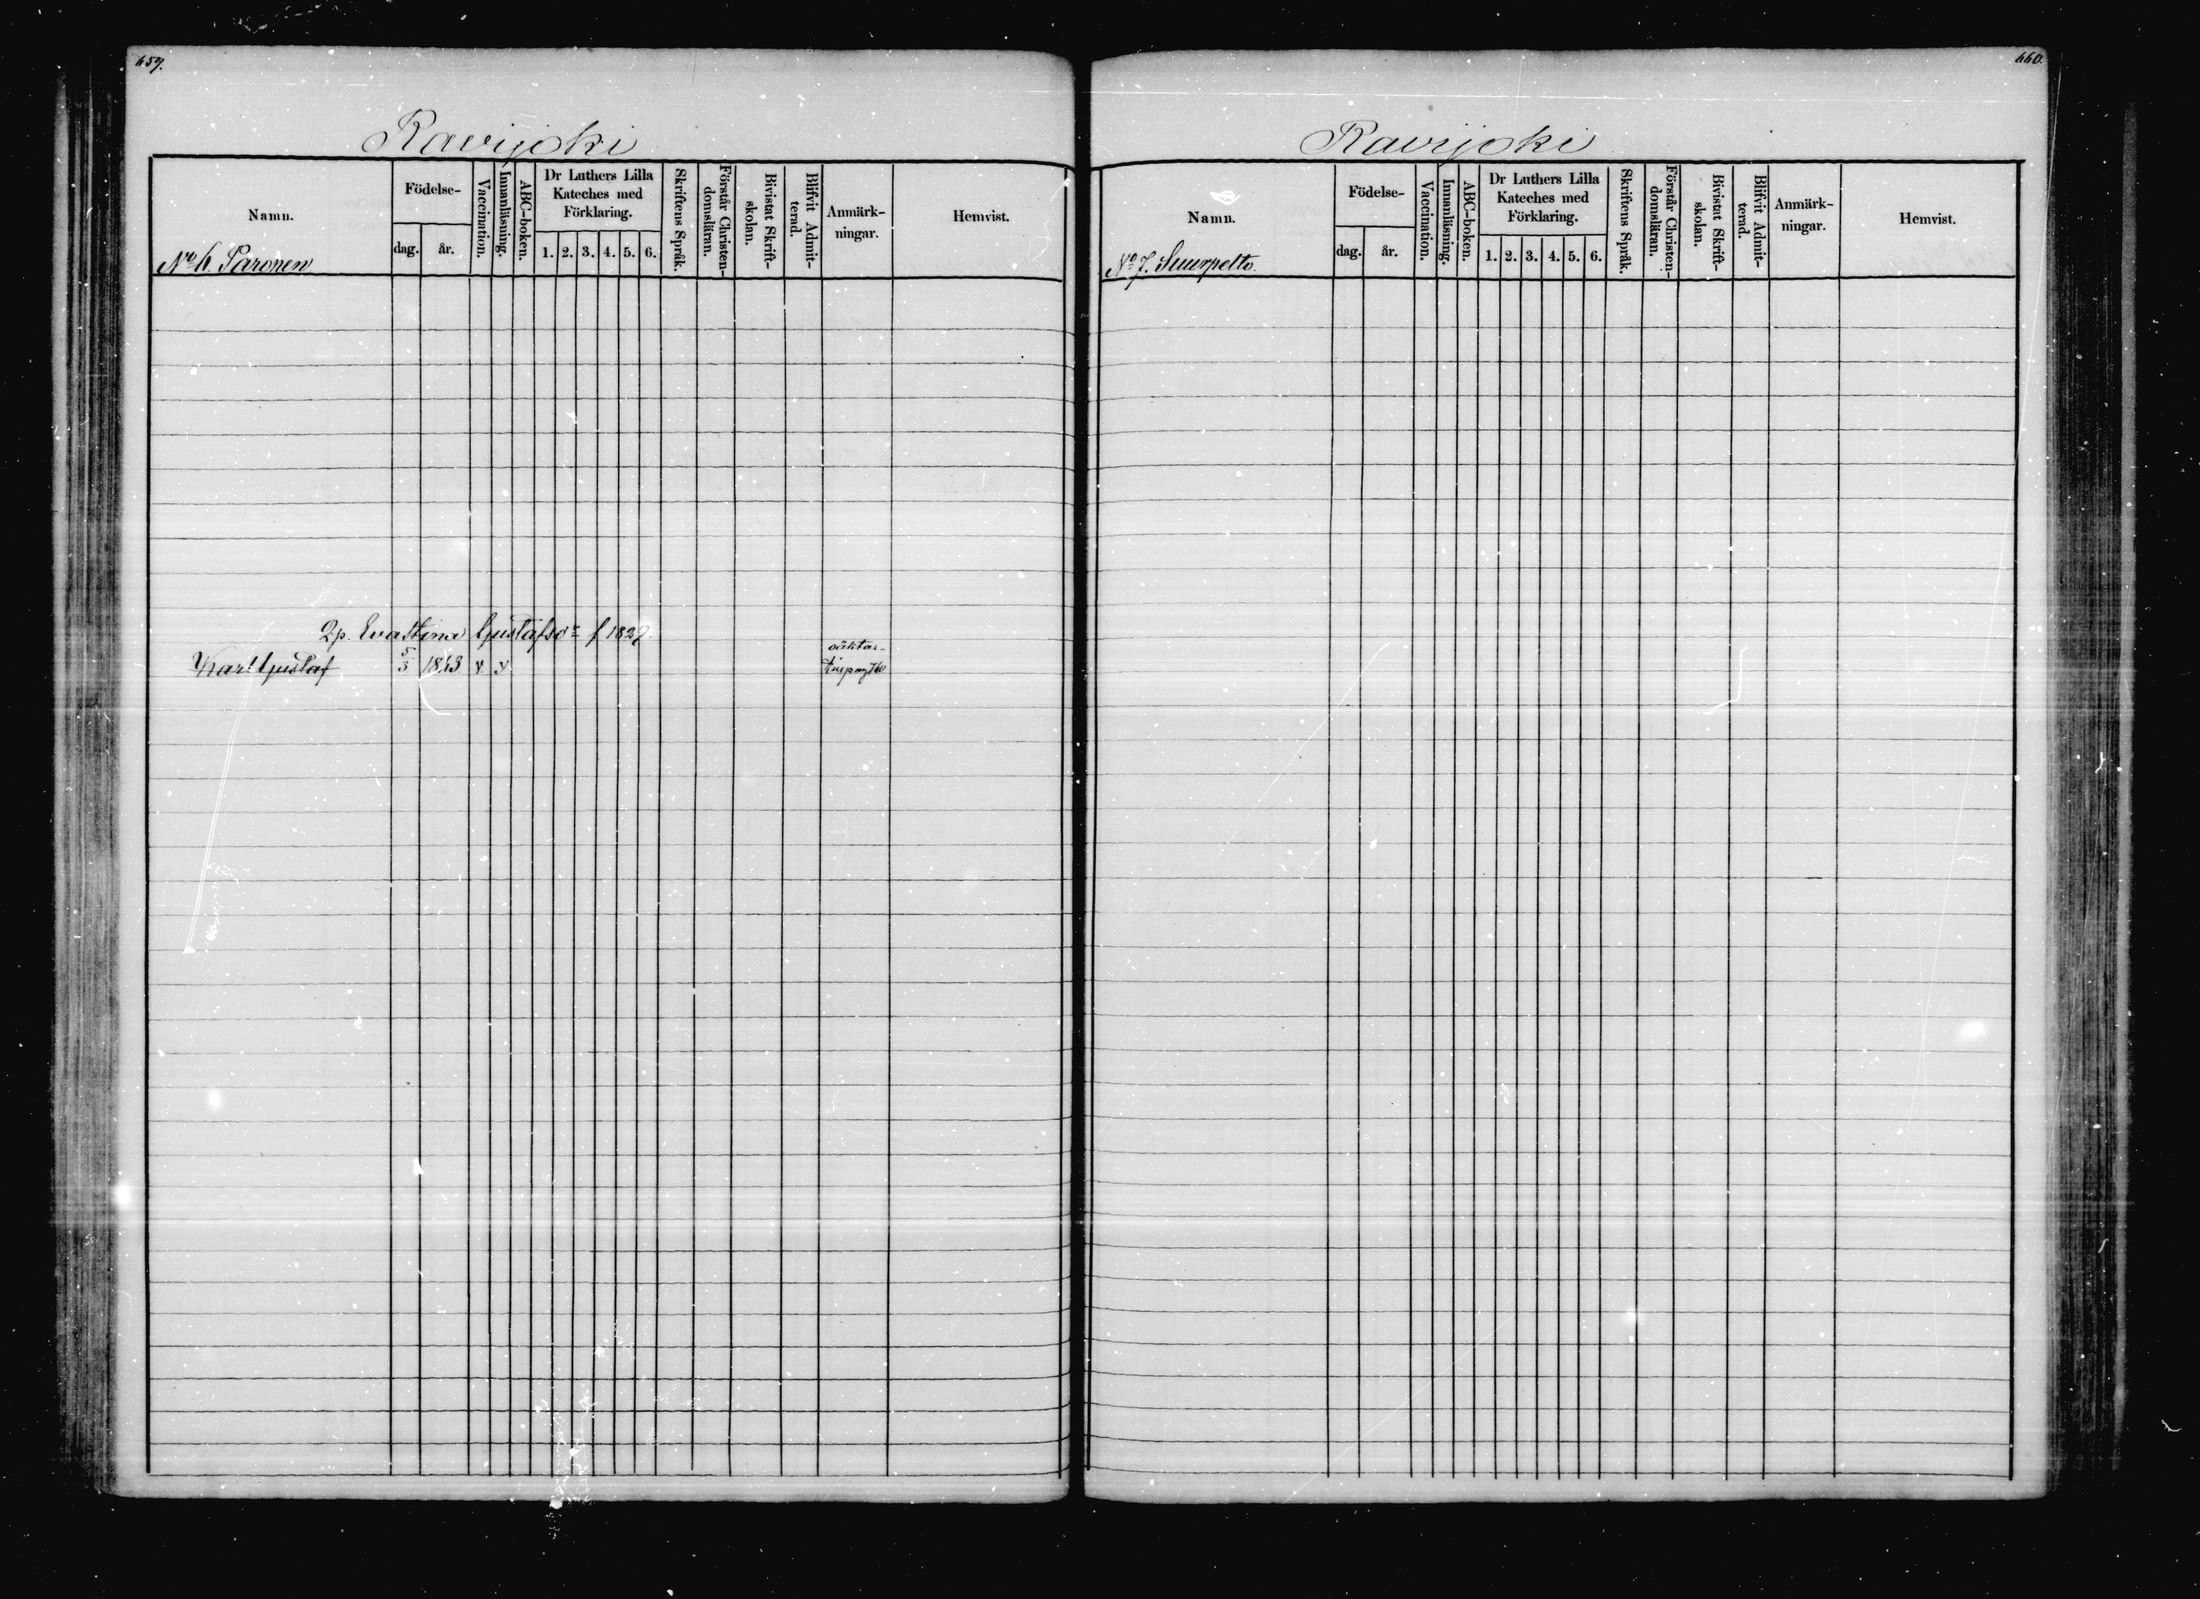 659.
Ravijoki
Namn.
Födelse-
dag. år.
Vaccination.
Innanläsning.
ABC-boken.
Dr Luthers Lilla
Kateches med
Förklaring.
1. 2. 3. 4. 5. 6.
Skriftens Språk.
Förstår Christen-
domsläran.
Bivistat Skrift-
skolan.
Blifvit Admit-
terad.
Anmärk-
ningar.
Hemvist.
No 6. Paronen
Qp. Evastina Gustafsdr f 1827.
oäkta
Karl Gustaf 5/3 1843 v. y
660.
Ravijoki
Namn.
Födelse-
dag. år.
Vaccination.
Innanläsning.
ABC-boken.
Dr Luthers Lilla
Kateches med
Förklaring.
1. 2. 3. 4. 5. 6.
Skriftens Språk.
Förstår Christen-
domsläran.
Bivistat Skrift-
skolan.
Blifvit Admit-
terad.
Anmärk-
ningar.
Hemvist.
No 7. Suurpelto.